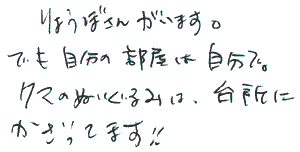 りょうぼさんがいます。
でも自分の部屋は自分で。
クマのぬいぐるみは、台所に
かざってます!!